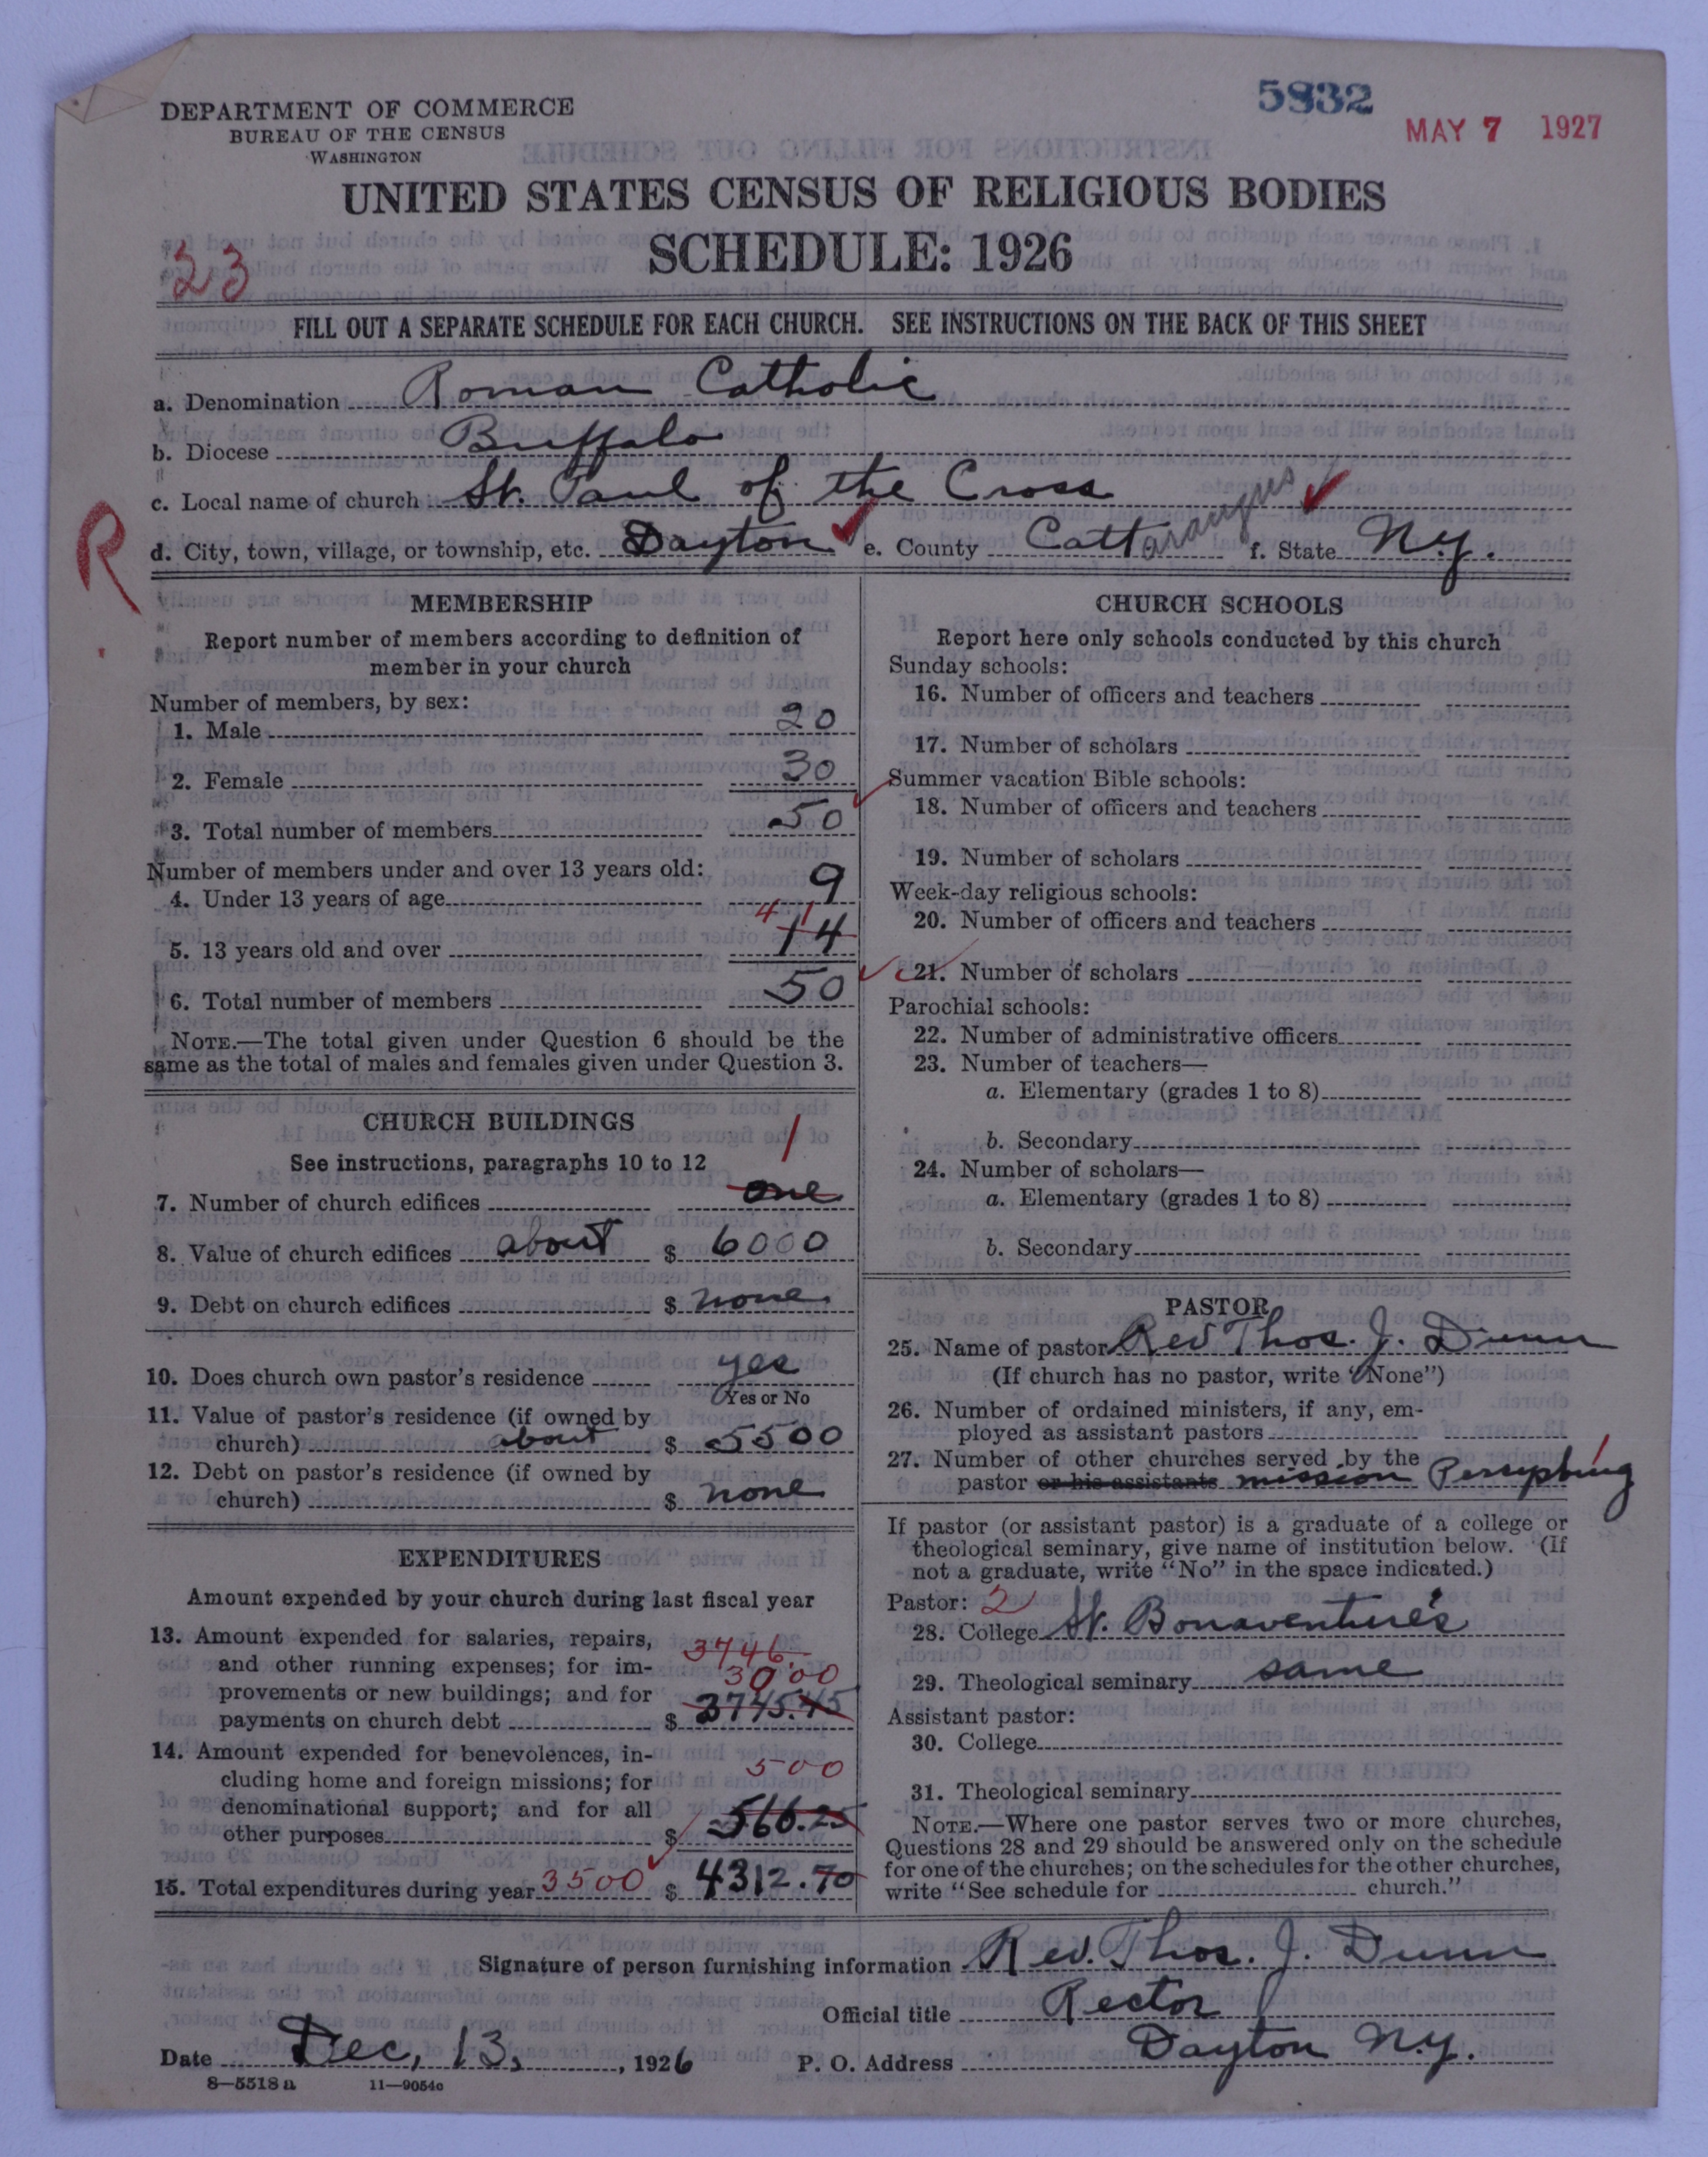 5832
MAY 7 1927
DEPARTMENT OF COMMERCE
BUREAU OF THE CENSUS
WASHINGTON
UNITED STATES CENSUS OF RELIGIOUS BODIES
SCHEDULE: 1926
23
FILL OUT A SEPARATE SCHEDULE FOR EACH CHURCH. SEE INSTRUCTIONS ON THE BACK OF THIS SHEET
a. Denomination Roman Catholic
b. Diocese Buffalo
c. Local name of church St. Paul of the Cross
R
d. City, town, village, or township, etc. Dayton e. County Cattaraugus f. State N.y.
MEMBERSHIP
Report number of members according to definition of
member in your church
Number of members, by sex:
1. Male 20
2. Female 30
3. Total number of members 50
Number of members under and over 13 years old:
4. Under 13 years of age 9
41
5. 13 years old and over 14
6. Total number of members 50
NOTE.—The total given under Question 6 should be the
same as the total of males and females given under Question 3.
CHURCH BUILDINGS
1
See instructions, paragraphs 10 to 12
7. Number of church edifices one
8. Value of church edifices about $ 6000
9. Debt on church edifices $ none
10. Does church own pastor's residence yes
Yes or No
11. Value of pastor's residence (if owned by
church) about $ 5500
12. Debt on pastor's residence (if owned by
church) $ none
EXPENDITURES
Amount expended by your church during last fiscal year
13. Amount expended for salaries, repairs, 3746.
and other running expenses; for im- 3000
provements or new buildings; and for 3745.45
payments on church debt $
14. Amount expended for benevolences, in-
cluding home and foreign missions; for 500
denominational support; and for all
other purposes $ 566.25
15. Total expenditures during year 3500 $ 4312.70
CHURCH SCHOOLS
Report here only schools conducted by this church
Sunday schools:
16. Number of officers and teachers
17. Number of scholars
Summer vacation Bible schools:
18. Number of officers and teachers
19. Number of scholars
Week-day religious schools:
20. Number of officers and teachers
21. Number of scholars
Parochial schools:
22. Number of administrative officers
23. Number of teachers—
a. Elementary (grades 1 to 8)
b. Secondary
24. Number of scholars—
a. Elementary (grades 1 to 8)
b. Secondary
PASTOR
25. Name of pastor Rev Thos. J. Dunn
(If church has no pastor, write "None")
26. Number of ordained ministers, if any, em-
ployed as assistant pastors
27. Number of other churches served by the 1
pastor or his assistants mission Perrysburg
If pastor (or assistant pastor) is a graduate of a college or
theological seminary, give name of institution below. (If
not a graduate, write "No" in the space indicated.)
Pastor: 2
28. College St. Bonaventure's
29. Theological seminary same
Assistant pastor:
30. College
31. Theological seminary
NOTE.—Where one pastor serves two or more churches,
Questions 28 and 29 should be answered only on the schedule
for one of the churches; on the schedules for the other churches,
write "See schedule for church."
Signature of person furnishing information Rev. Thos. J. Dunn
Official title Rector
Date Dec, 13, , 1926 P. O. Address Dayton N.y.
8—5518 a 11—9054c